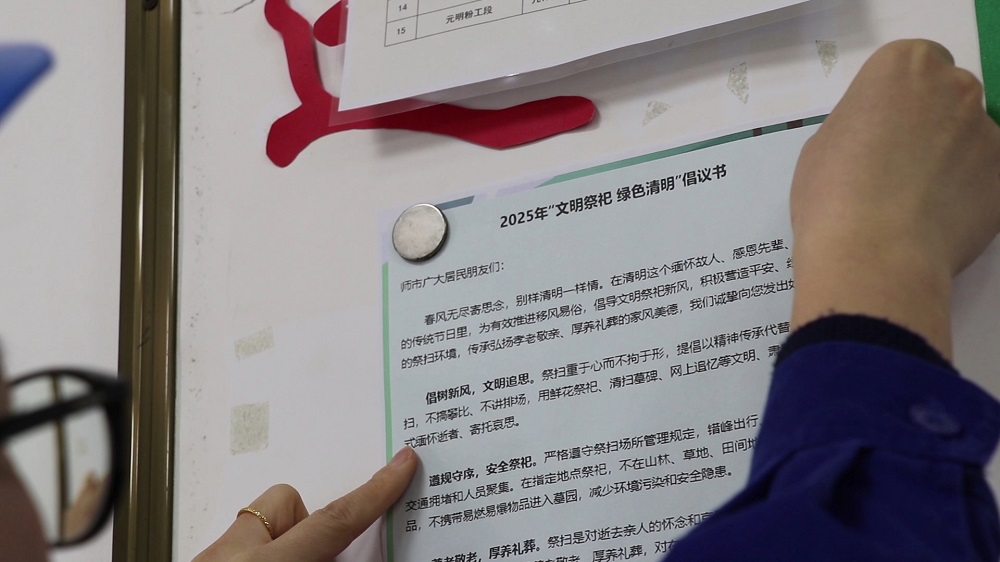 14
15 元明粉工段
2025年“文明祭祀 绿色清明”倡议书
师市广大居民朋友们：
春风无尽寄思念，别样清明一样情。在清明这个缅怀故人、感恩先辈、
的传统节日里，为有效推进移风易俗，倡导文明祭祀新风，积极营造平安、
的祭扫环境，传承弘扬孝老敬亲、厚养礼葬的家风美德，我们诚挚向您发出如
倡树新风，文明追思。祭扫重于心而不拘于形，提倡以精神传承代替
扫，不搞攀比、不讲排场，用鲜花祭祀、清扫墓碑、网上追忆等文明、
式缅怀逝者、寄托哀思。
遵规守序，安全祭祀。严格遵守祭扫场所管理规定，错峰出行
交通拥堵和人员聚集。在指定地点祭祀，不在山林、草地、田间地
品，不携带易燃易爆物品进入墓园，减少环境污染和安全隐患。
孝老敬老，厚养礼葬。祭扫是对逝去亲人的怀念和
敬老、厚养礼葬，对